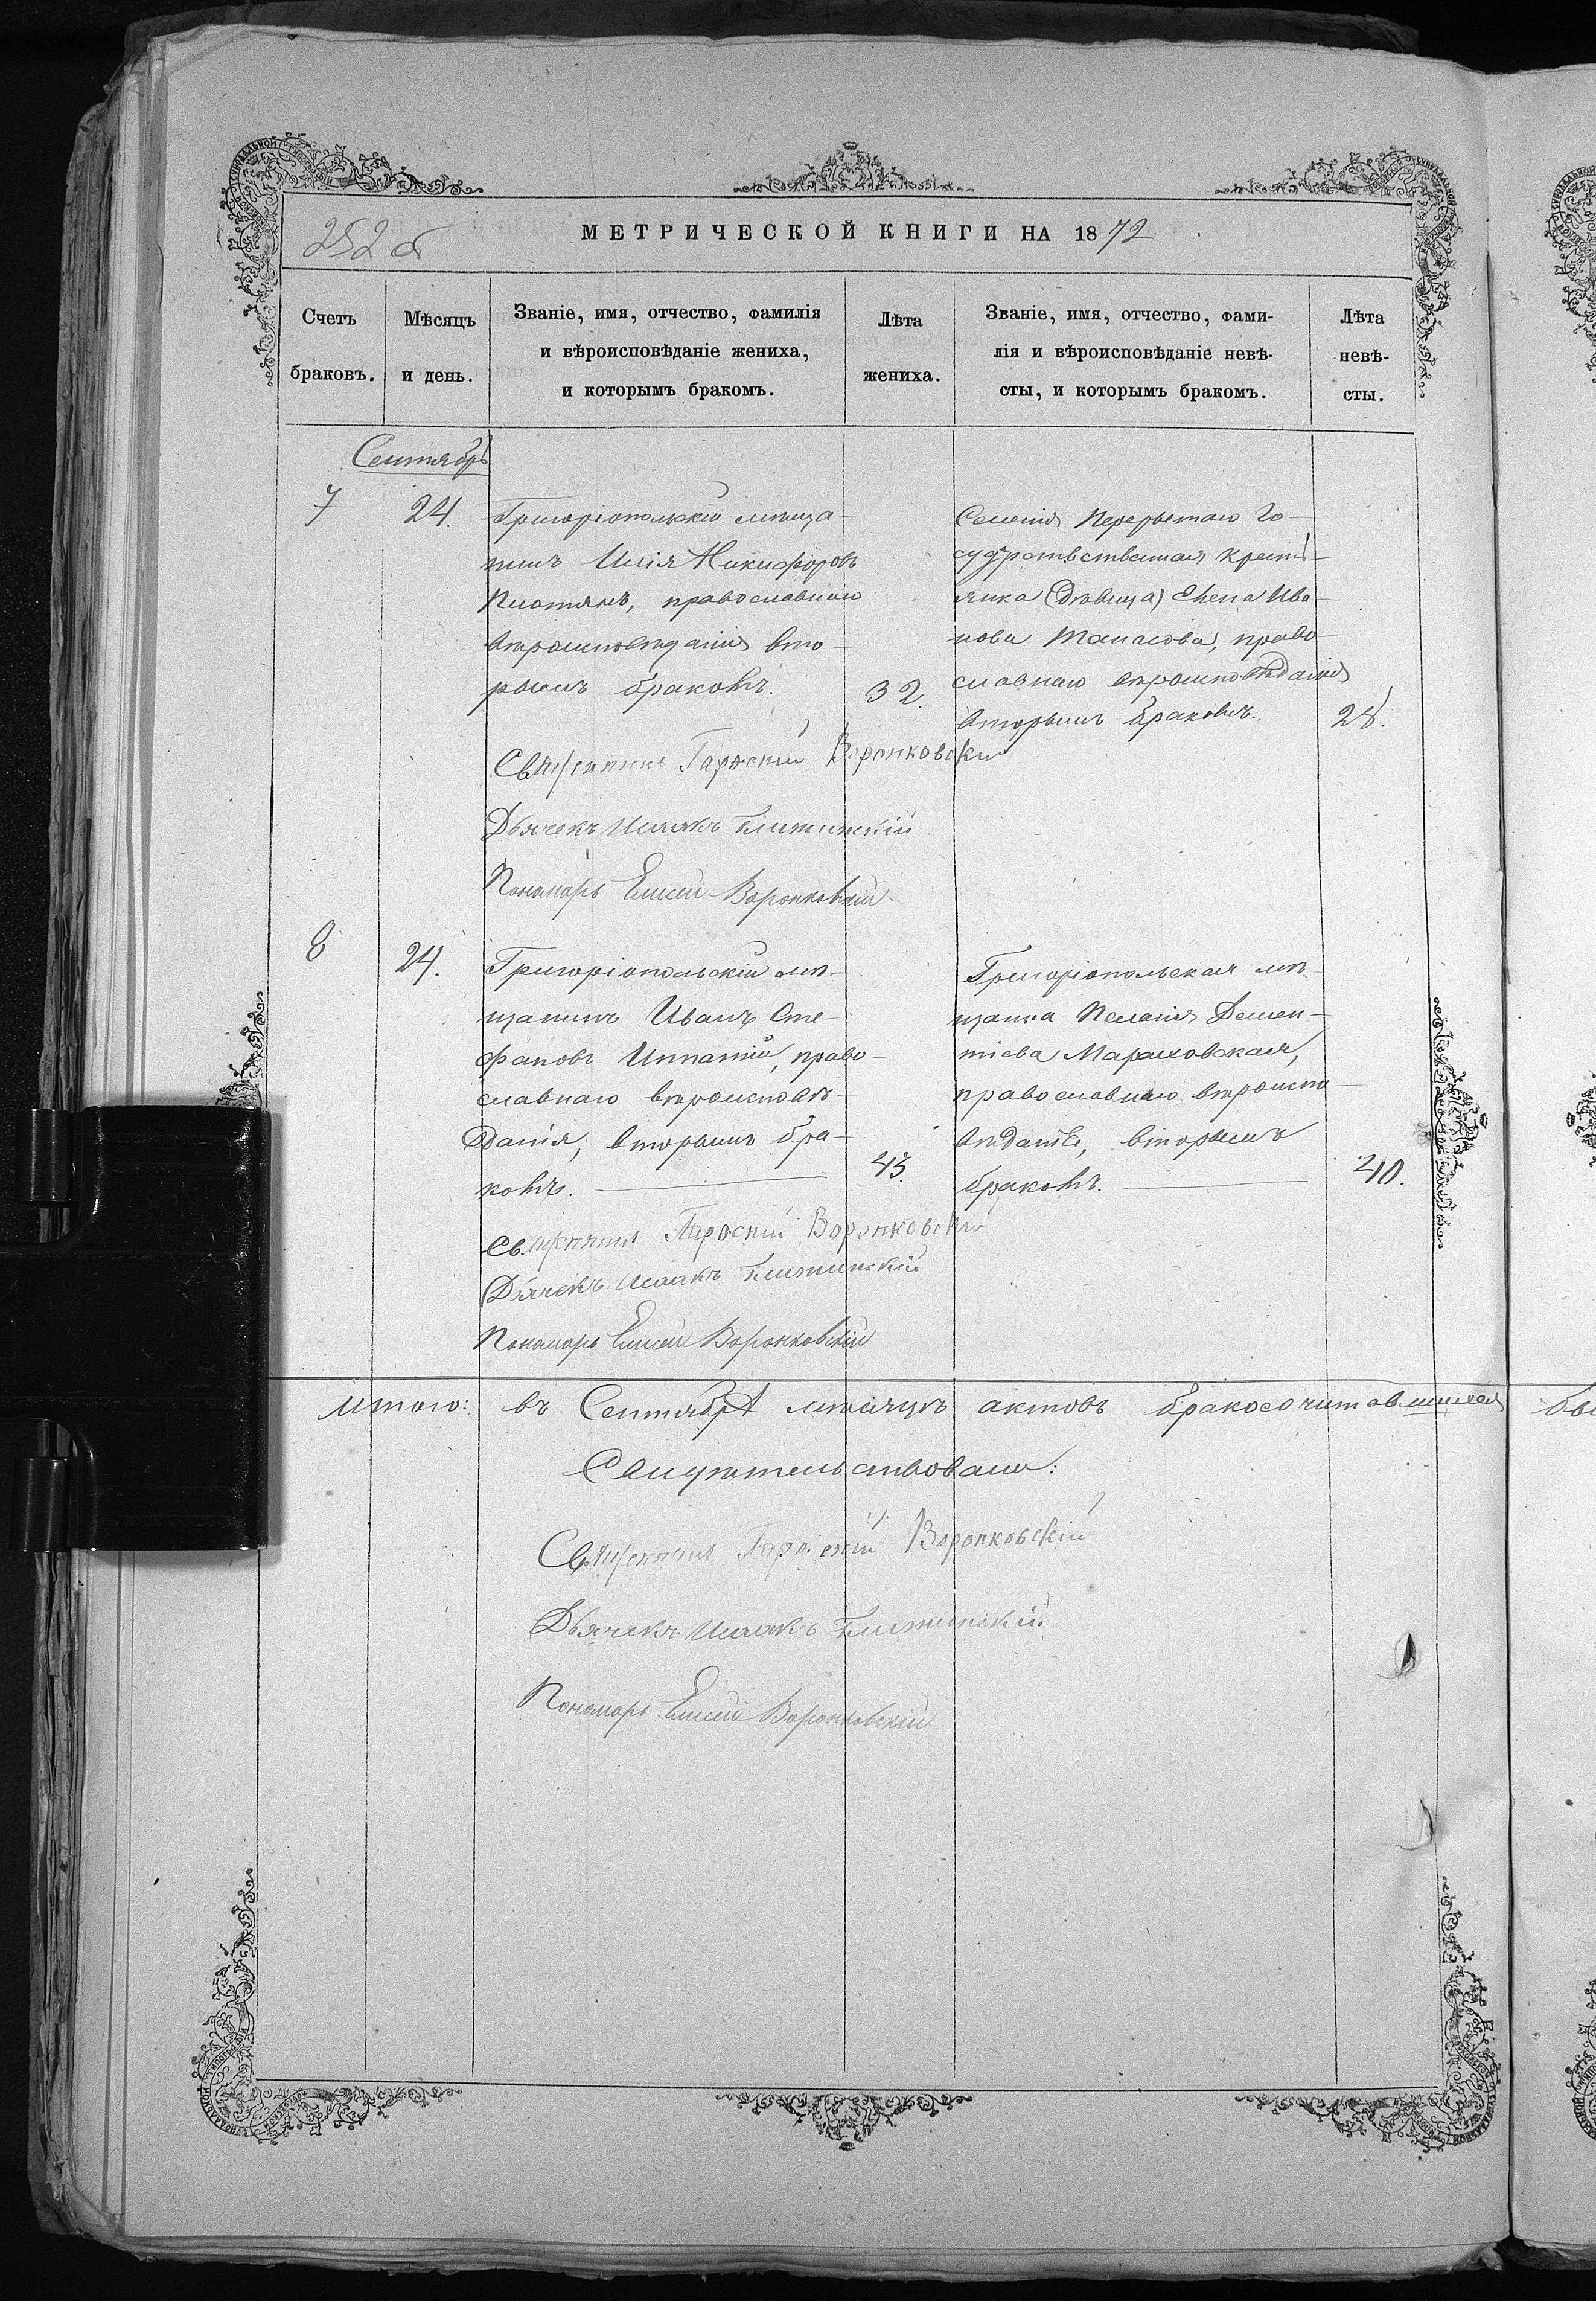 252 об
МЕТРИЧЕСКОЙ КНИГИ НА 1872
Счетъ браковъ.
Мѣсяцъ и день.
Званіе, имя, отчество, фамилія
и вѣроисповѣданіе жениха,
и которымъ бракомъ.
Лѣта жениха.
Званіе, имя, отчество, фами-
лія и вѣроисповѣданіе невѣ-
сты, и которымъ бракомъ.
Лѣта невѣ-
сты.
Сентябрь
7
24.
Григоріопольскій мѣща-
нинъ Илія Никифоровъ
православнаго
вѣроисповѣданія вто-
рымъ бракомъ.
32.
Селенія Перерытаго Го-
сударственная кресть-
янка (дѣвица) Елена Ива-
нова Танасова, право-
славнаго вѣроисповѣданія
вторымъ бракомъ.
28.
Священникъ Воронковскій
Дьячекъ Исаакъ
Пономарь Елисей Воронковскій
8
24.
Григоріопольскій мѣ-
щанинъ Иванъ Сте-
фановъ Ипатій, право-
славнаго вѣроисповѣ-
данія, вторымъ бра-
комъ.
43.
Григоріопольская мѣ-
щанка Пелагія Демен-
тіева Мараховская,
православнаго вѣроиспо-
вѣданія, вторымъ
бракомъ.
40.
Священникъ Воронковскій
Дьячекъ Исаакъ
Пономарь Елисей Воронковскій
Итого: въ Сентябрѣ мѣсяцѣ актовъ бракосочитавшихся
Свидѣтельствовали:
Священникъ Воронковскій
Дьячекъ Исаакъ
Пономарь Елисей Воронковскій